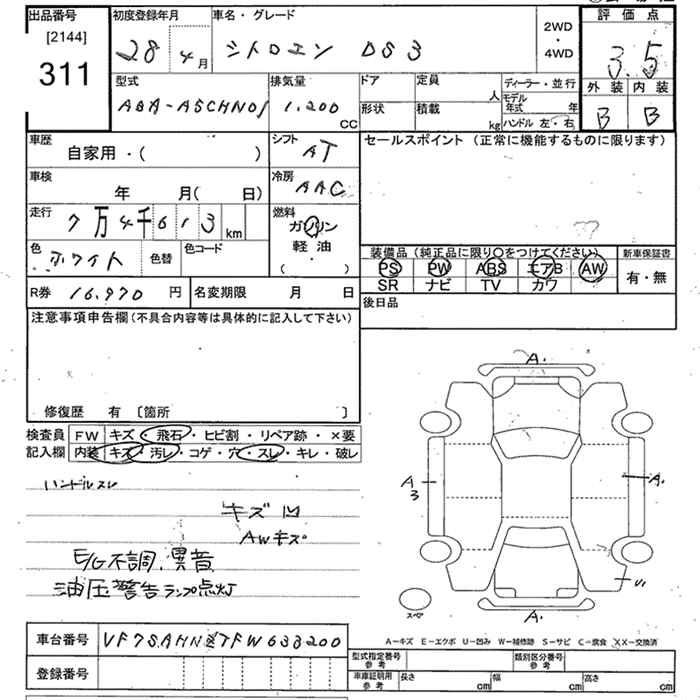 出品番号 初度登録年月 車名・グレード 2WD・4WD 評価点
[2144]
311
28年4月 シトロエン DS3 3.5
型式 排気量 ドア 定員 人 ディーラー・並行 外装 内装
モデル年式 年
ABA-A5CHN01 1,200 CC 形状 積載 kg ハンドル 左・右 B B
車歴 シフト セールスポイント (正常に機能するものに限ります)
自家用・( ) AT
車検 冷房
年 月( 日) AAC
走行 燃料
7万4千613km ガソリン
軽油
( )
色 ホワイト 色替 色コード
装備品 (純正品に限り○をつけてください) 新車保証書
PS PW ABS エアB AW 有・無
SR ナビ TV カワ
R券 16,970 円 名変期限 月 日
後日品
注意事項申告欄(不具合内容等は具体的に記入して下さい)
修復歴 有 [箇所 ]
検査員 FW キズ・飛石・ヒビ割・リペア跡・×要
記入欄 内装 キズ・汚レ・コゲ・穴・スレ・キレ・破レ
ハンドルスレ
キズ凹
AWキズ
E/G不調、異音
油圧警告ランプ点灯
A.
A3 A.
U1
スペア
A.
A-キズ E-エクボ U-凹み W-補修跡 S-サビ C-腐食 XX-交換済
車台番号
登録番号
型式指定番号 参考 類別区分番号 参考
車庫証明用 参考 長さ cm 幅 cm 高さ cm